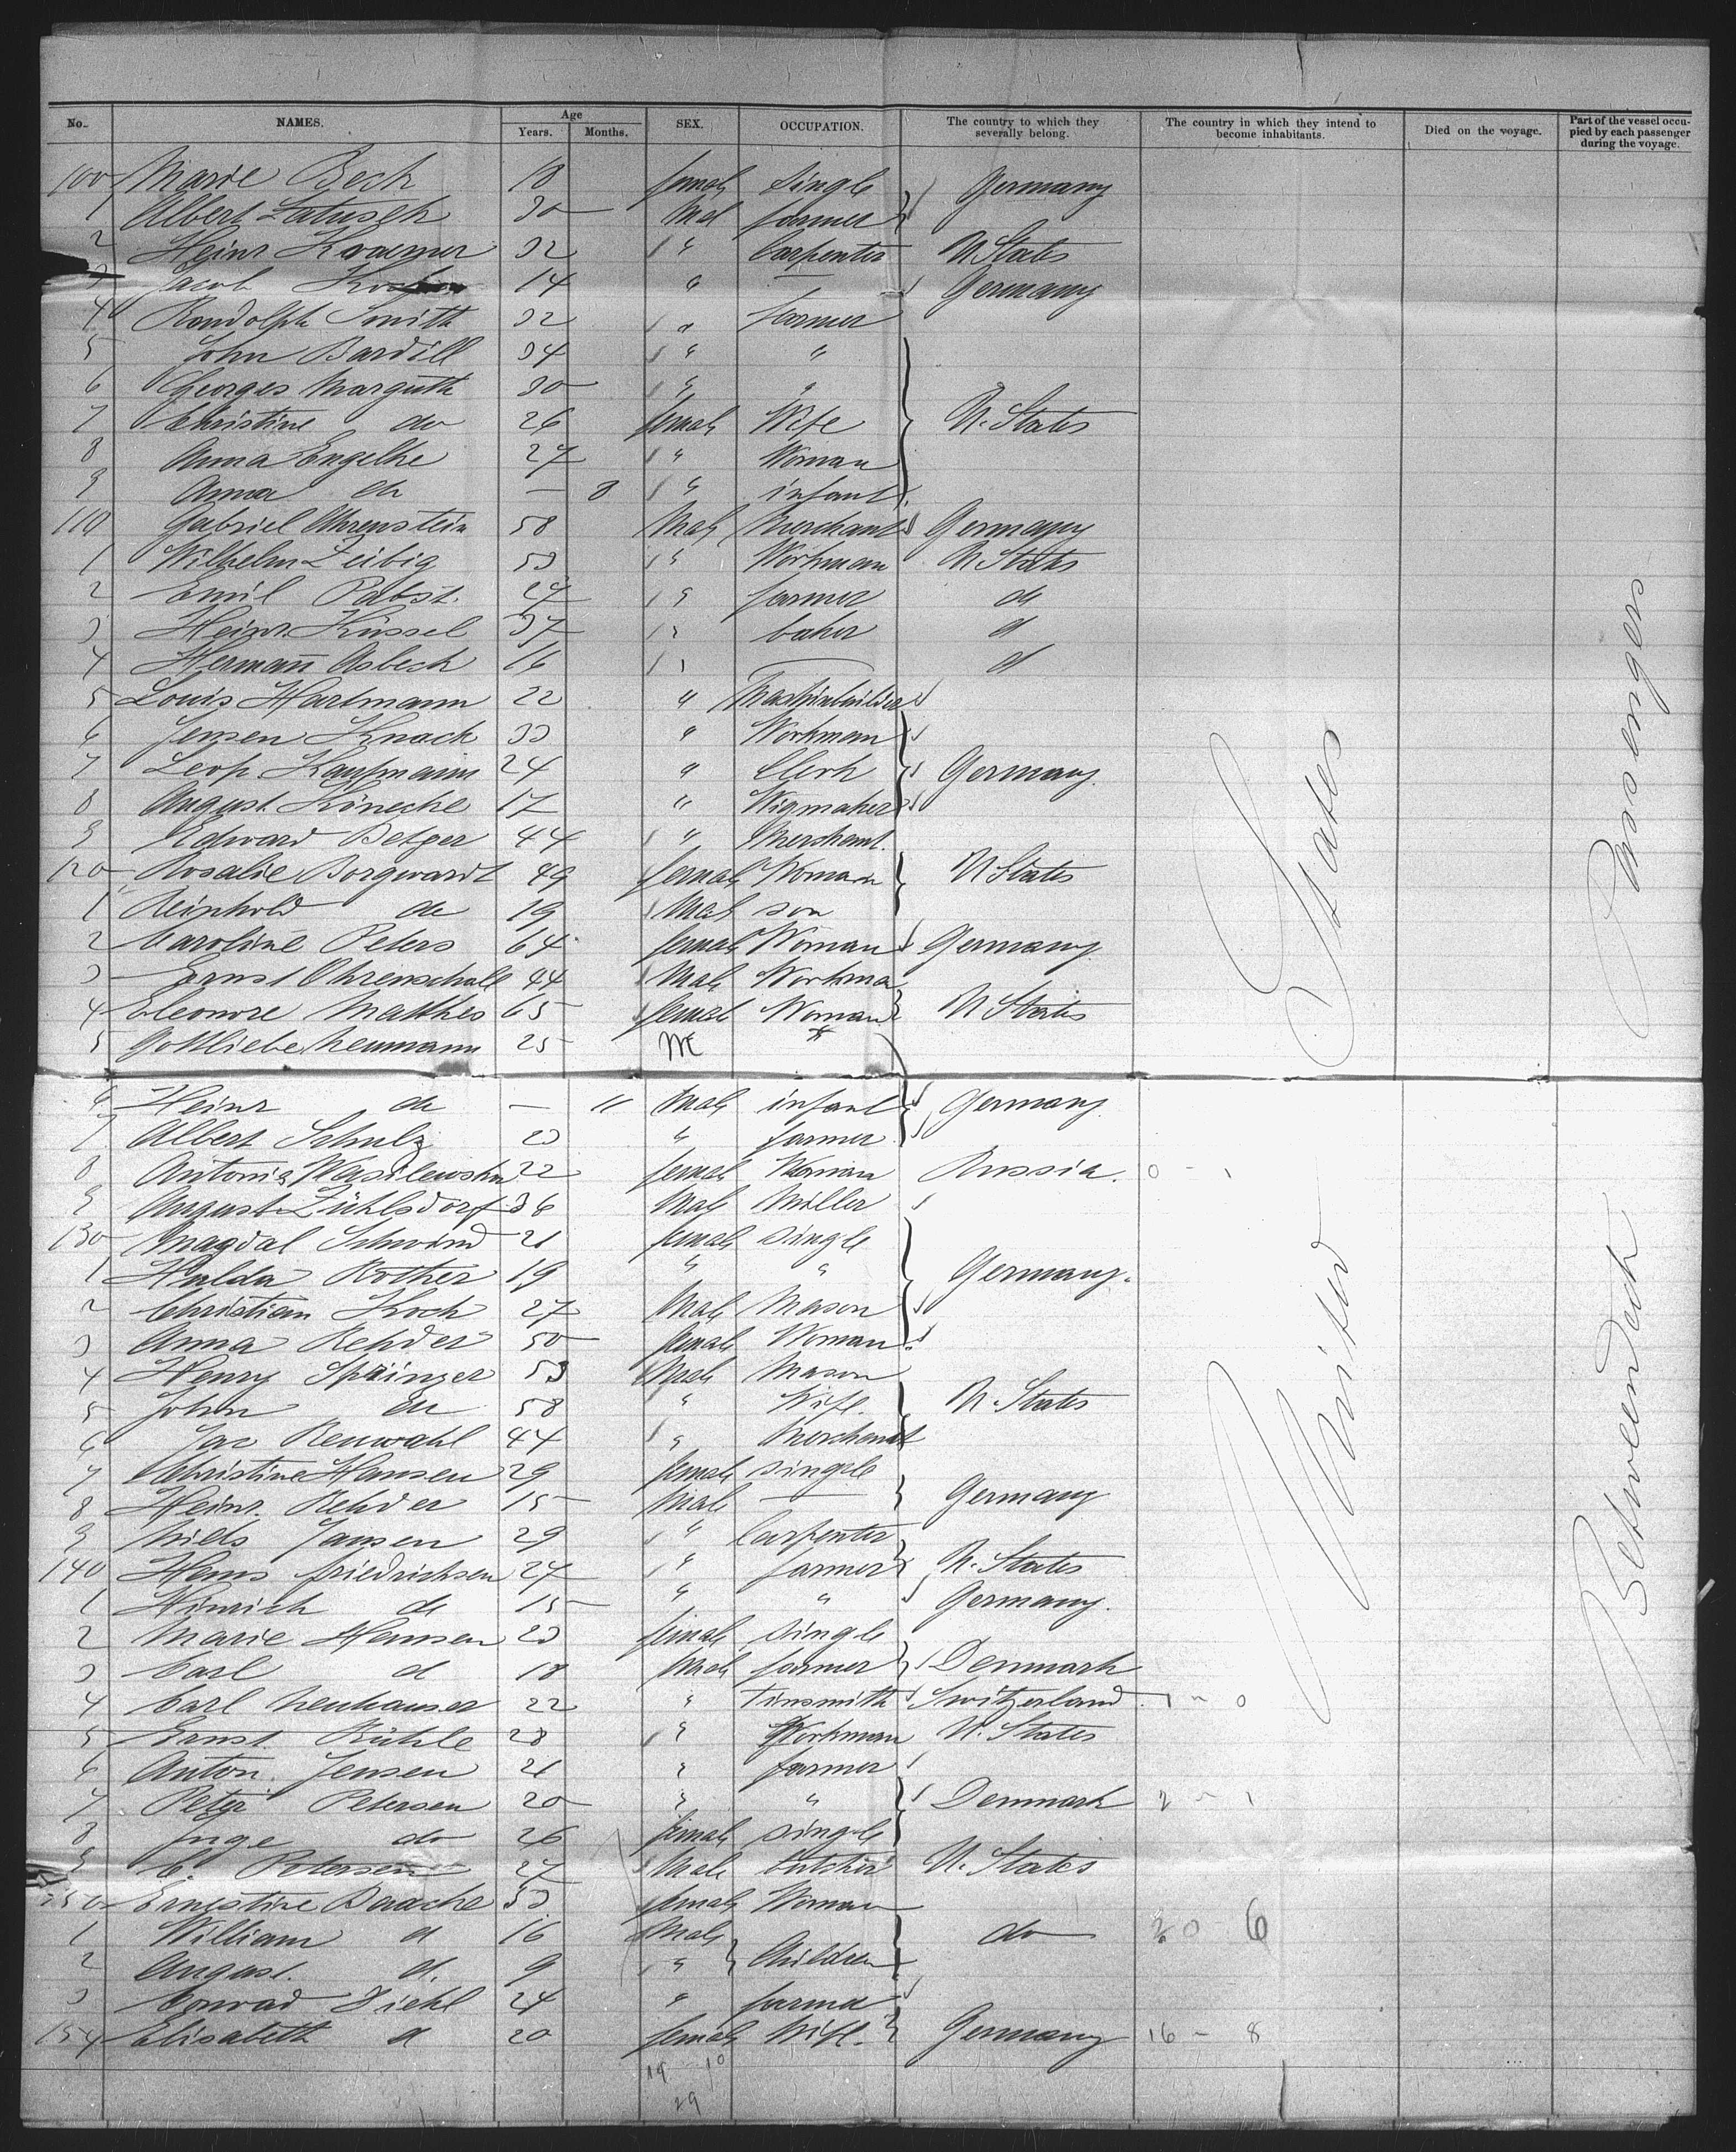 No. NAMES. Age Years. Months. SEX. OCCUPATION. The country to which they severally belong. The country in which they intend to become inhabitants. Died on the voyage. Part of the vessel occupied by each passenger during the voyage.
100 Marie Bech 18 female single Germany
1 Albert Latusek 30 Mal farmer
2 Heinr Kraemer 32 " Carpenter U States
3 Jacob 14 " — Germany
4 Randolph Smith 32 " farmer
5 John Bardill 34 " "
6 Georges Marguth 30 " "
7 Christine do 26 female Wife U. States
8 Anna Engelke 27 " Woman
9 Anna do — 8 " infant
110 Gabriel Ohrenstein 58 Male Merchant Germany
1 Wilhelm Leibig 53 " Workman U States
2 Emil Pabst. 27 " farmer do
3 Heinr. Küssel 37 " baker d
4 Hermann Asbeck 16 " — d
5 Louis Hartmann 22 "
6 Jensen Knack 33 " Workman
7 Leop. Kaufmann 24 " Clerk Germany.
8 August Könecke 17 " Wigmaker
9 Edward Betger 44 " Merchant.
120 Rosalie Borgwardt 49 female Woman U States
1 Reinhold do 19 Male son
2 Caroline Peters 64 female Woman Germany
3 Ernst Ohrenschall 44 Male Workma
4 Eleonore Matthes 65 female Woman U States
5 Gottliebe Neumann 25
6 Heinr do — 11 Male infant Germany
7 Albert Schulz 23 " farmer
8 Antonia Wasilewska 22 female Woman Russia. 0 - 1
9 August Zühlsdorf 36 Male Miller
130 Magdal Schwind 21 female single
1 Hulda Rother 19 " " Germany.
2 Christian Koch 27 Male Mason
3 Anna Rehder 50 female Woman
4 Henry Springer 53 Male Mason
5 John do 58 " Wife. U. States
6 Jac Renwahl 44 " Merchant
7 Christine Hansen 29 female single
8 Heinr. Rehder 15 Male — Germany
9 Niels Jansen 29 " Carpenter
140 Hans friedrichsen 27 " farmer U. States
1 Hinrich d 15 " " Germany.
2 Marie Hansen 23 female single
3 Carl d 18 Male farmer Denmark
4 Carl Neuhauser 22 " Tinsmith Switzerland 1 - 0
5 Ernst Rühle 28 " Workman U. States
6 Anton Jensen 21 " farmer
7 Peter Petersen 20 " " Denmark 2 - 1
8 Inge do 26 female single
9 C. Petersen 27 Male butcher U. States
150 Ernestine Baache 53 female Woman
1 William d 16 Male do 20 6
2 August. d. 9 " Children
3 Conrad Diehl 24 " farmer
154 Elisabeth d 20 female Wife. Germany 16 - 8
19 10
29
United States
Betweendeck Passengers